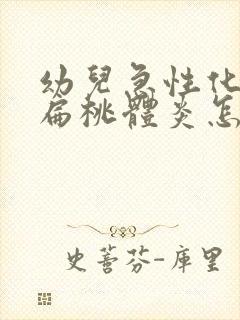 幼兒急性化
扁桃體炎怎
史蒂芬-庫里